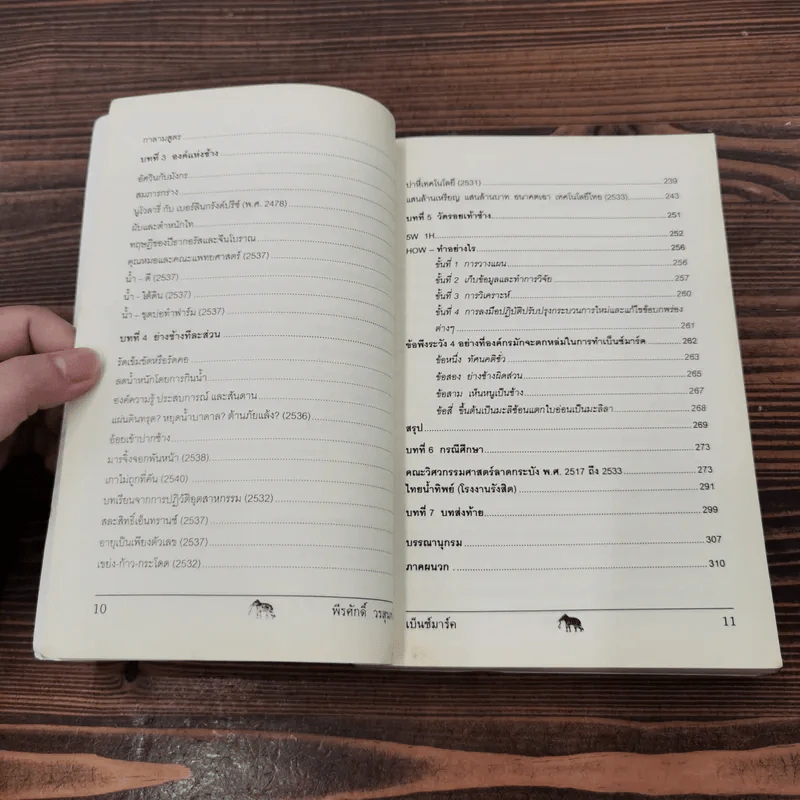 กาลามสูตร
บทที่ 3 องค์แห่งช้าง
อัศวินกับมังกร
สมภารกร่าง
บูโรวสารี กับ เบอร์ลินกรังด์ปรีซ์ (พ.ศ. 2478)
ผับและตำหนักไท
ทฤษฎีของปีธากอรัสและจีนโบราณ
คุณหมอและคณะแพทยศาสตร์ (2537)
น้ำ – ดี (2537)
น้ำ – ใต้ดิน (2537)
น้ำ – ขุดบ่อทำฟาร์ม (2537)
บทที่ 4 ย่างช้างทีละส่วน
รัดเข็มขัดหรือรัดคอ
ลดน้ำหนักโดยการกินน้ำ
องค์ความรู้ ประสบการณ์ และสันดาน
แผ่นดินทรุด? หยุดน้ำบาดาล? ต้านภัยแล้ง? (2536)
อ้อยเข้าปากช้าง
มารจิ้งจอกพันหน้า (2538)
เกาไม่ถูกที่คัน (2540)
บทเรียนจากการปฏิวัติอุตสาหกรรม (2532)
สละสิทธิ์เอ็นทรานซ์ (2537)
อายุเป็นเพียงตัวเลข (2537)
เขย่ง-ก้าว-กระโดด (2532)
10 พีรศักดิ์
เทคโนโลยี (2531) 239
แสนล้านเหรียญ แสนล้านบาท เทคโนโลยีไทย (2533) 243
บทที่ 5 วัดรอยเท้าช้าง 251
5W 1H 252
HOW – ทำอย่างไร 256
ขั้นที่ 1 การวางแผน 256
ขั้นที่ 2 เก็บข้อมูลและทำการวิจัย 257
ขั้นที่ 3 การวิเคราะห์ 260
ขั้นที่ 4 การลงมือปฏิบัติปรับปรุงกระบวนการใหม่และแก้ไขข้อบกพร่อง
ต่างๆ 261
ข้อพึงระวัง 4 อย่างที่องค์กรมักจะตกหล่มในการทำเบ็นช์มาร์ค 262
ข้อหนึ่ง ทัศนคติชั่ว 263
ข้อสอง ย่างช้างผิดส่วน 265
ข้อสาม เห็นหนูเป็นช้าง 267
ข้อสี่ ขึ้นต้นเป็นมะลิซ้อนแตกใบอ่อนเป็นมะลิลา 268
สรุป 269
บทที่ 6 กรณีศึกษา 273
คณะวิศวกรรมศาสตร์ลาดกระบัง พ.ศ. 2517 ถึง 2533 273
ไทยน้ำทิพย์ (โรงงานรังสิต) 291
บทที่ 7 บทส่งท้าย 299
บรรณานุกรม 307
ภาคผนวก 310
เบ็นช์มาร์ค 11